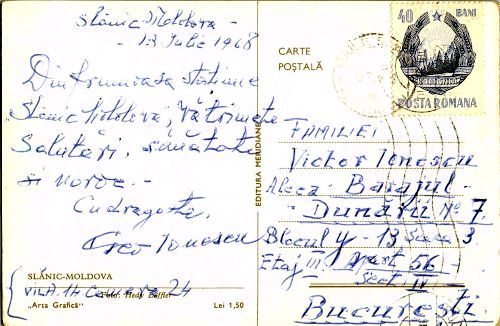 Slănic Moldova -
- 13 Iulie 1968
Din frumoasa stațiune
Slănic Moldova, vă trimete
Salutări, sănătate
și noroc. -
Cu dragoste,
Geo Ionescu
SLĂNIC-MOLDOVA
Foto: Hedy Löffler
Vila 14 Camera 24
„Arta Grafică" Lei 1,50
EDITURA MERIDIANE
CARTE
POȘTALĂ
40 BANI
POSTA ROMANA
FAMILIEI
Victor Ionescu
Aleea - Barajul -
- Dunării No 7.
Blocul y - 13 Scara 3
Etaj III Apart 56
Sect. IV
București.